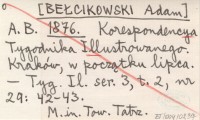 [BEŁCIKOWSKI Adam]
A.B. 1876. Korespondencya
Tygodnika Illustrowanego.
Kraków, w początku lipca.
— Tyg. Il. ser. 3, t. 2, nr
29: 42-43.
M.in. Tow. Tatrz.